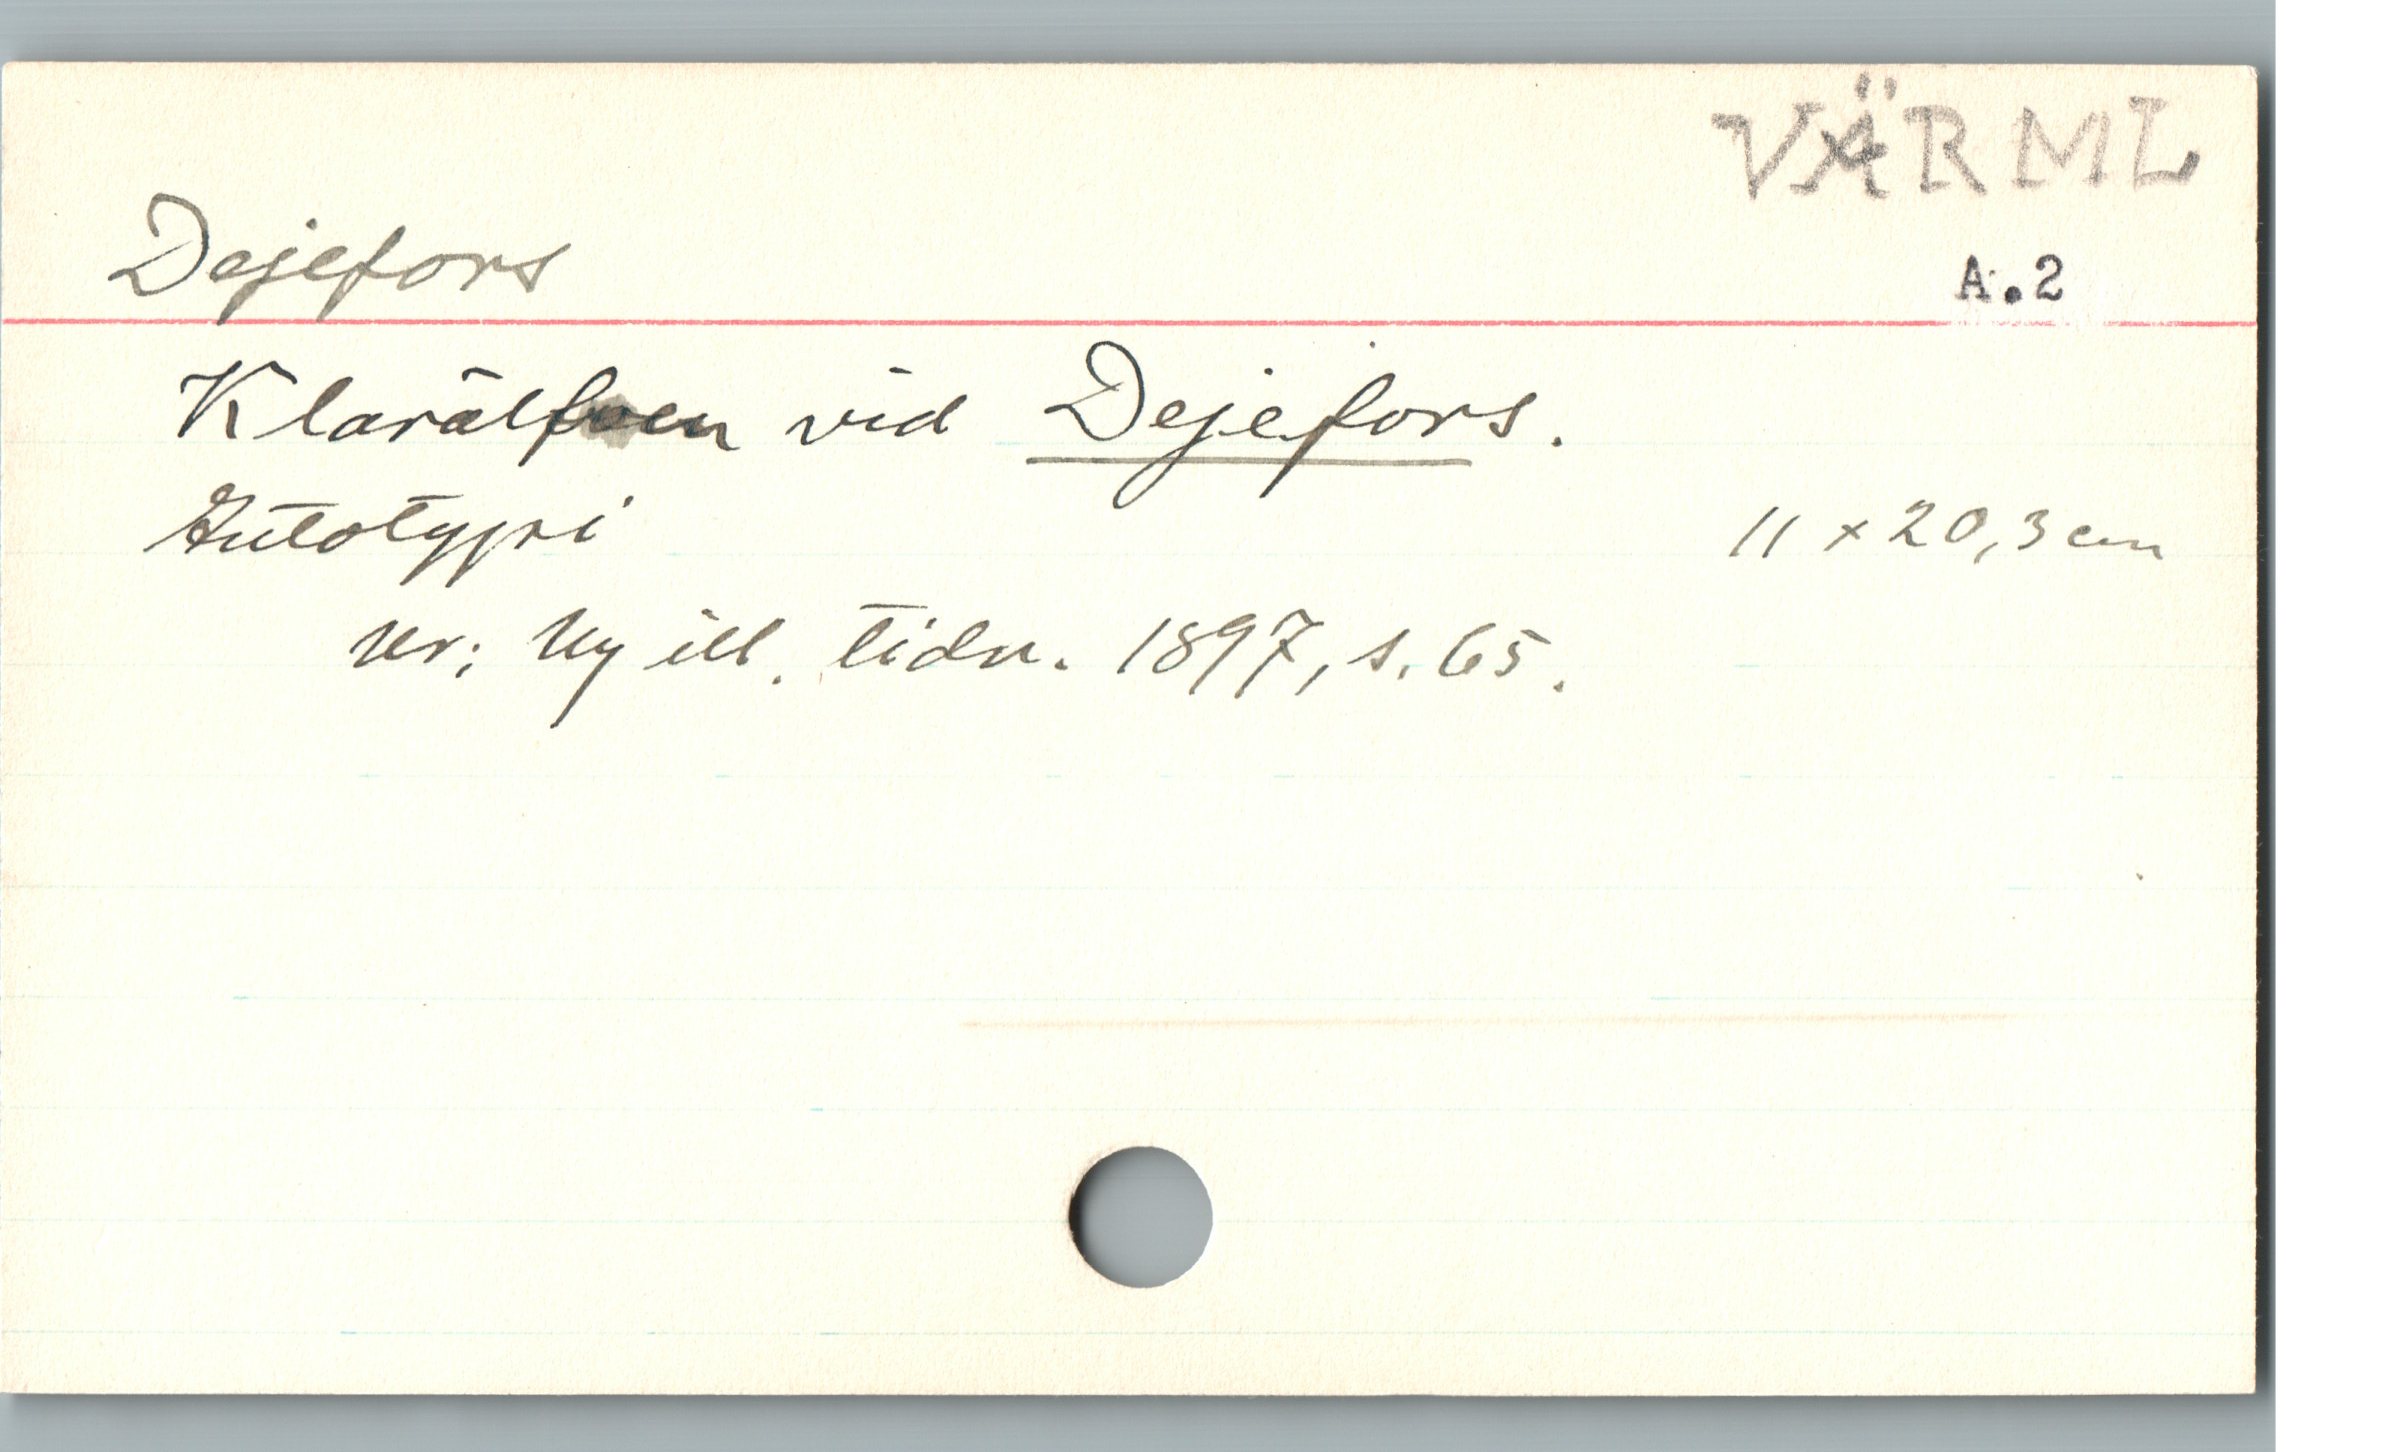 VÄRML
Dejefors
A.2
Klarälfven vid Dejefors.
Autotypi 11 x 20,3 cm
ur: Ny ill. tidn. 1897, s. 65.